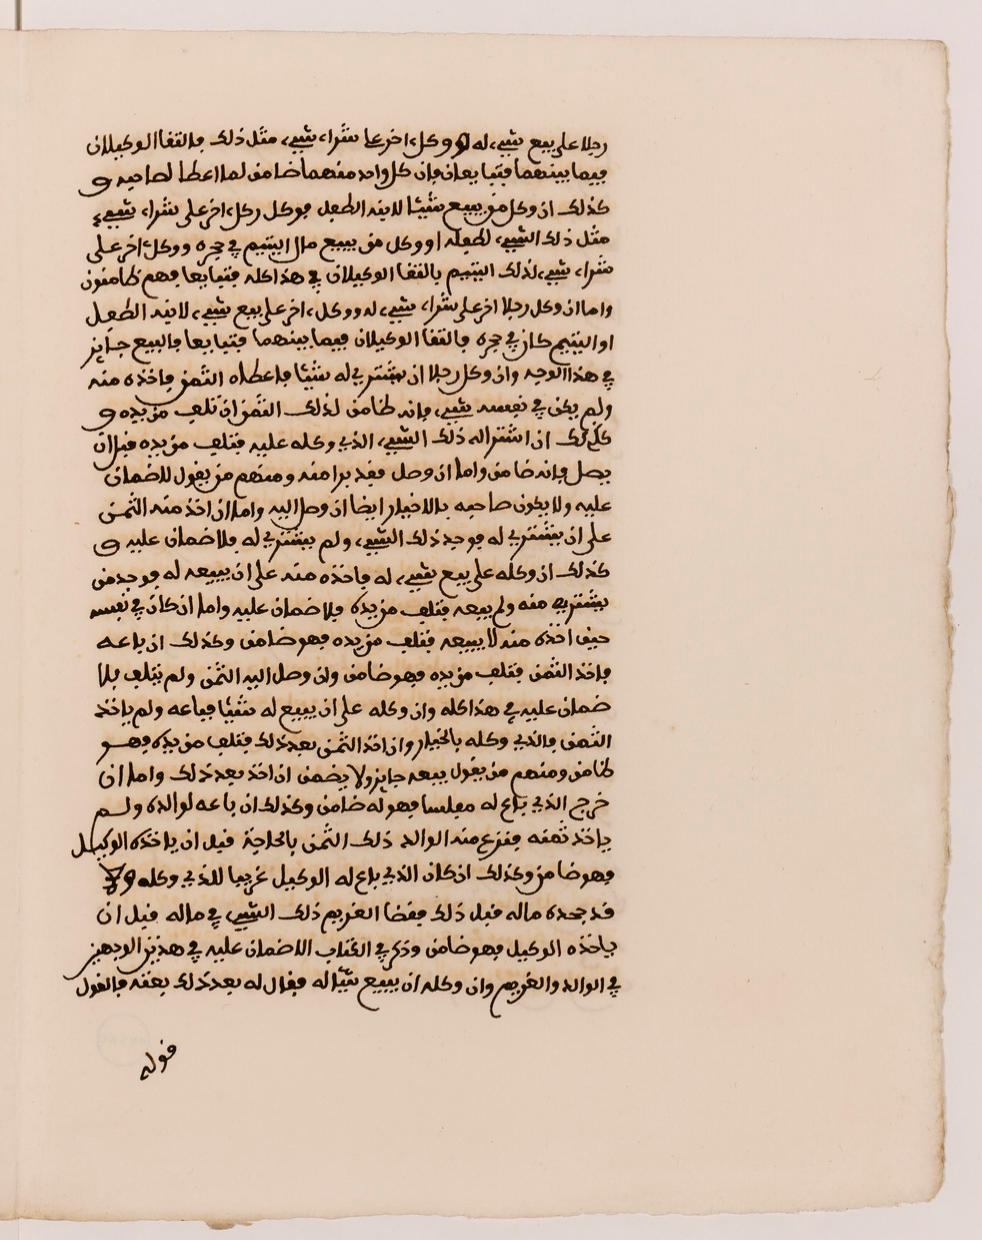 رجلا على بيع شيء له او وكل اخر على شراء شيء مثل ذلك فالتقا الوكيلان
فيما بينهما فتبايعان فان كل واحد منهما ضامن لما اعطا لصاحبه و
كذلك ان وكل من يبيع شيئا لابنه الطفل فوكل رجل اخر على شراء شيء
مثل ذلك الشيء لطفله او وكل من يبيع مال اليتيم في حجره ووكل اخر على
شراء شيء لذلك اليتيم فالتقا الوكيلان في هذا كله فتبايعا فهم ظامنون
واما ان وكل رجلا اخر على شراء شيء له ووكل اخر على بيع شيء لابنه الطفل
او اليتيم كان في حجره فالتقا الوكيلان فيما بينهما فتبايعا فالبيع جايز
في هذا الوجه وان وكل رجلا ان يشتري له شيئا فاعطاه الثمن فاخذه منه
ولم يكن في نفسه شيء فانه ظامن لذلك الثمن ان تلف من يده و
كذلك ان اشترا له ذلك الشيء الذي وكله عليه فتلف من يده قبل ان
يصل فانه ضامن واما ان وصل فقد برا منه ومنهم من يقول لا ضمان
عليه ولا يكون صاحبه بالاخيار ايضا ان وصل اليه واما ان اخذ منه الثمن
على ان يشتري له فوجد ذلك الشيء ولم يشتري له فلا ضمان عليه و
كذلك ان وكله على بيع شيء له فاخذه منه على ان يبيعه له فوجد من
يشتريه منه ولم يبيعه فتلف من يده فلا ضمان عليه واما ان كان في نفسه
حين اخذه منه لا يبيعه فتلف من يده فهو ضامن وكذلك ان باعه
فاخذ الثمن فتلف من يده فهو ضامن وان وصل اليه الثمن ولم يتلف فلا
ضمان عليه في هذا كله وان وكله على ان يبيع له شيئا فباعه ولم ياخذ
الثمن فالذي وكله بالخيار وان اخذ الثمن بعد ذلك فتلف من يده فهو
ظامن ومنهم من يقول بيعه جايز ولا يضمن ان اخذ بعد ذلك واما ان
خرج الذي باع له مفلسا فهو له ضامن وكذلك ان باعه لوالده ولم
ياخذ ثمنه فنزع منه الوالد ذلك الثمن بالحاجة قبل ان ياخذه الوكيل
فهو ضامن وكذلك ان كان الذي باع له الوكيل غريما للذي وكله
قد جحده ماله قبل ذلك فقضا الغريم ذلك الشيء في ماله قبل ان
ياخذه الوكيل فهو ضامن وذكر في الكتاب الا ضمان عليه في هذين الوجهين
في الوالد والغريم وان وكله ان يبيع شيئا له فقال له بعد ذلك بعته فالقول
قوله